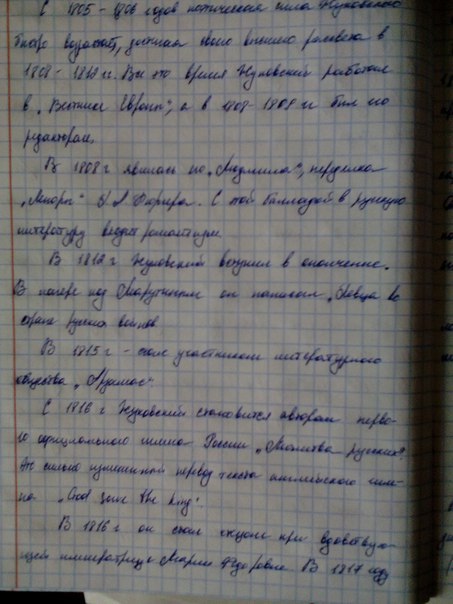 С 1805 - 1806 годов поэтическая сила Жуковского
быстро возрастает, достигая своего высшего расцвета в
1808 - 1812 гг. Все это время Жуковский работал
в „Вестнике Европы“, а в 1808-1809 гг был его
редактором.
В 1808 г явилась его „Людмила“, переделка
„Леноры“ Бюргера. С этой балладой в русскую
литературу входит романтизм.
В 1812 г Жуковский вступил в ополчение.
В лагере под Тарутином он написал „Певца во
стане русских воинов.
В 1815 г - стал участником литературного
общества „Арзамас“
С 1816 г Жуковский становится автором перво-
го официального гимна России „Молитва русских“.
Это сильно измененный перевод текста английского гим-
на „God save the king“.
В 1816 г он стал чтецом при вдовствую-
щей императрице Марии Федоровне. В 1817 году